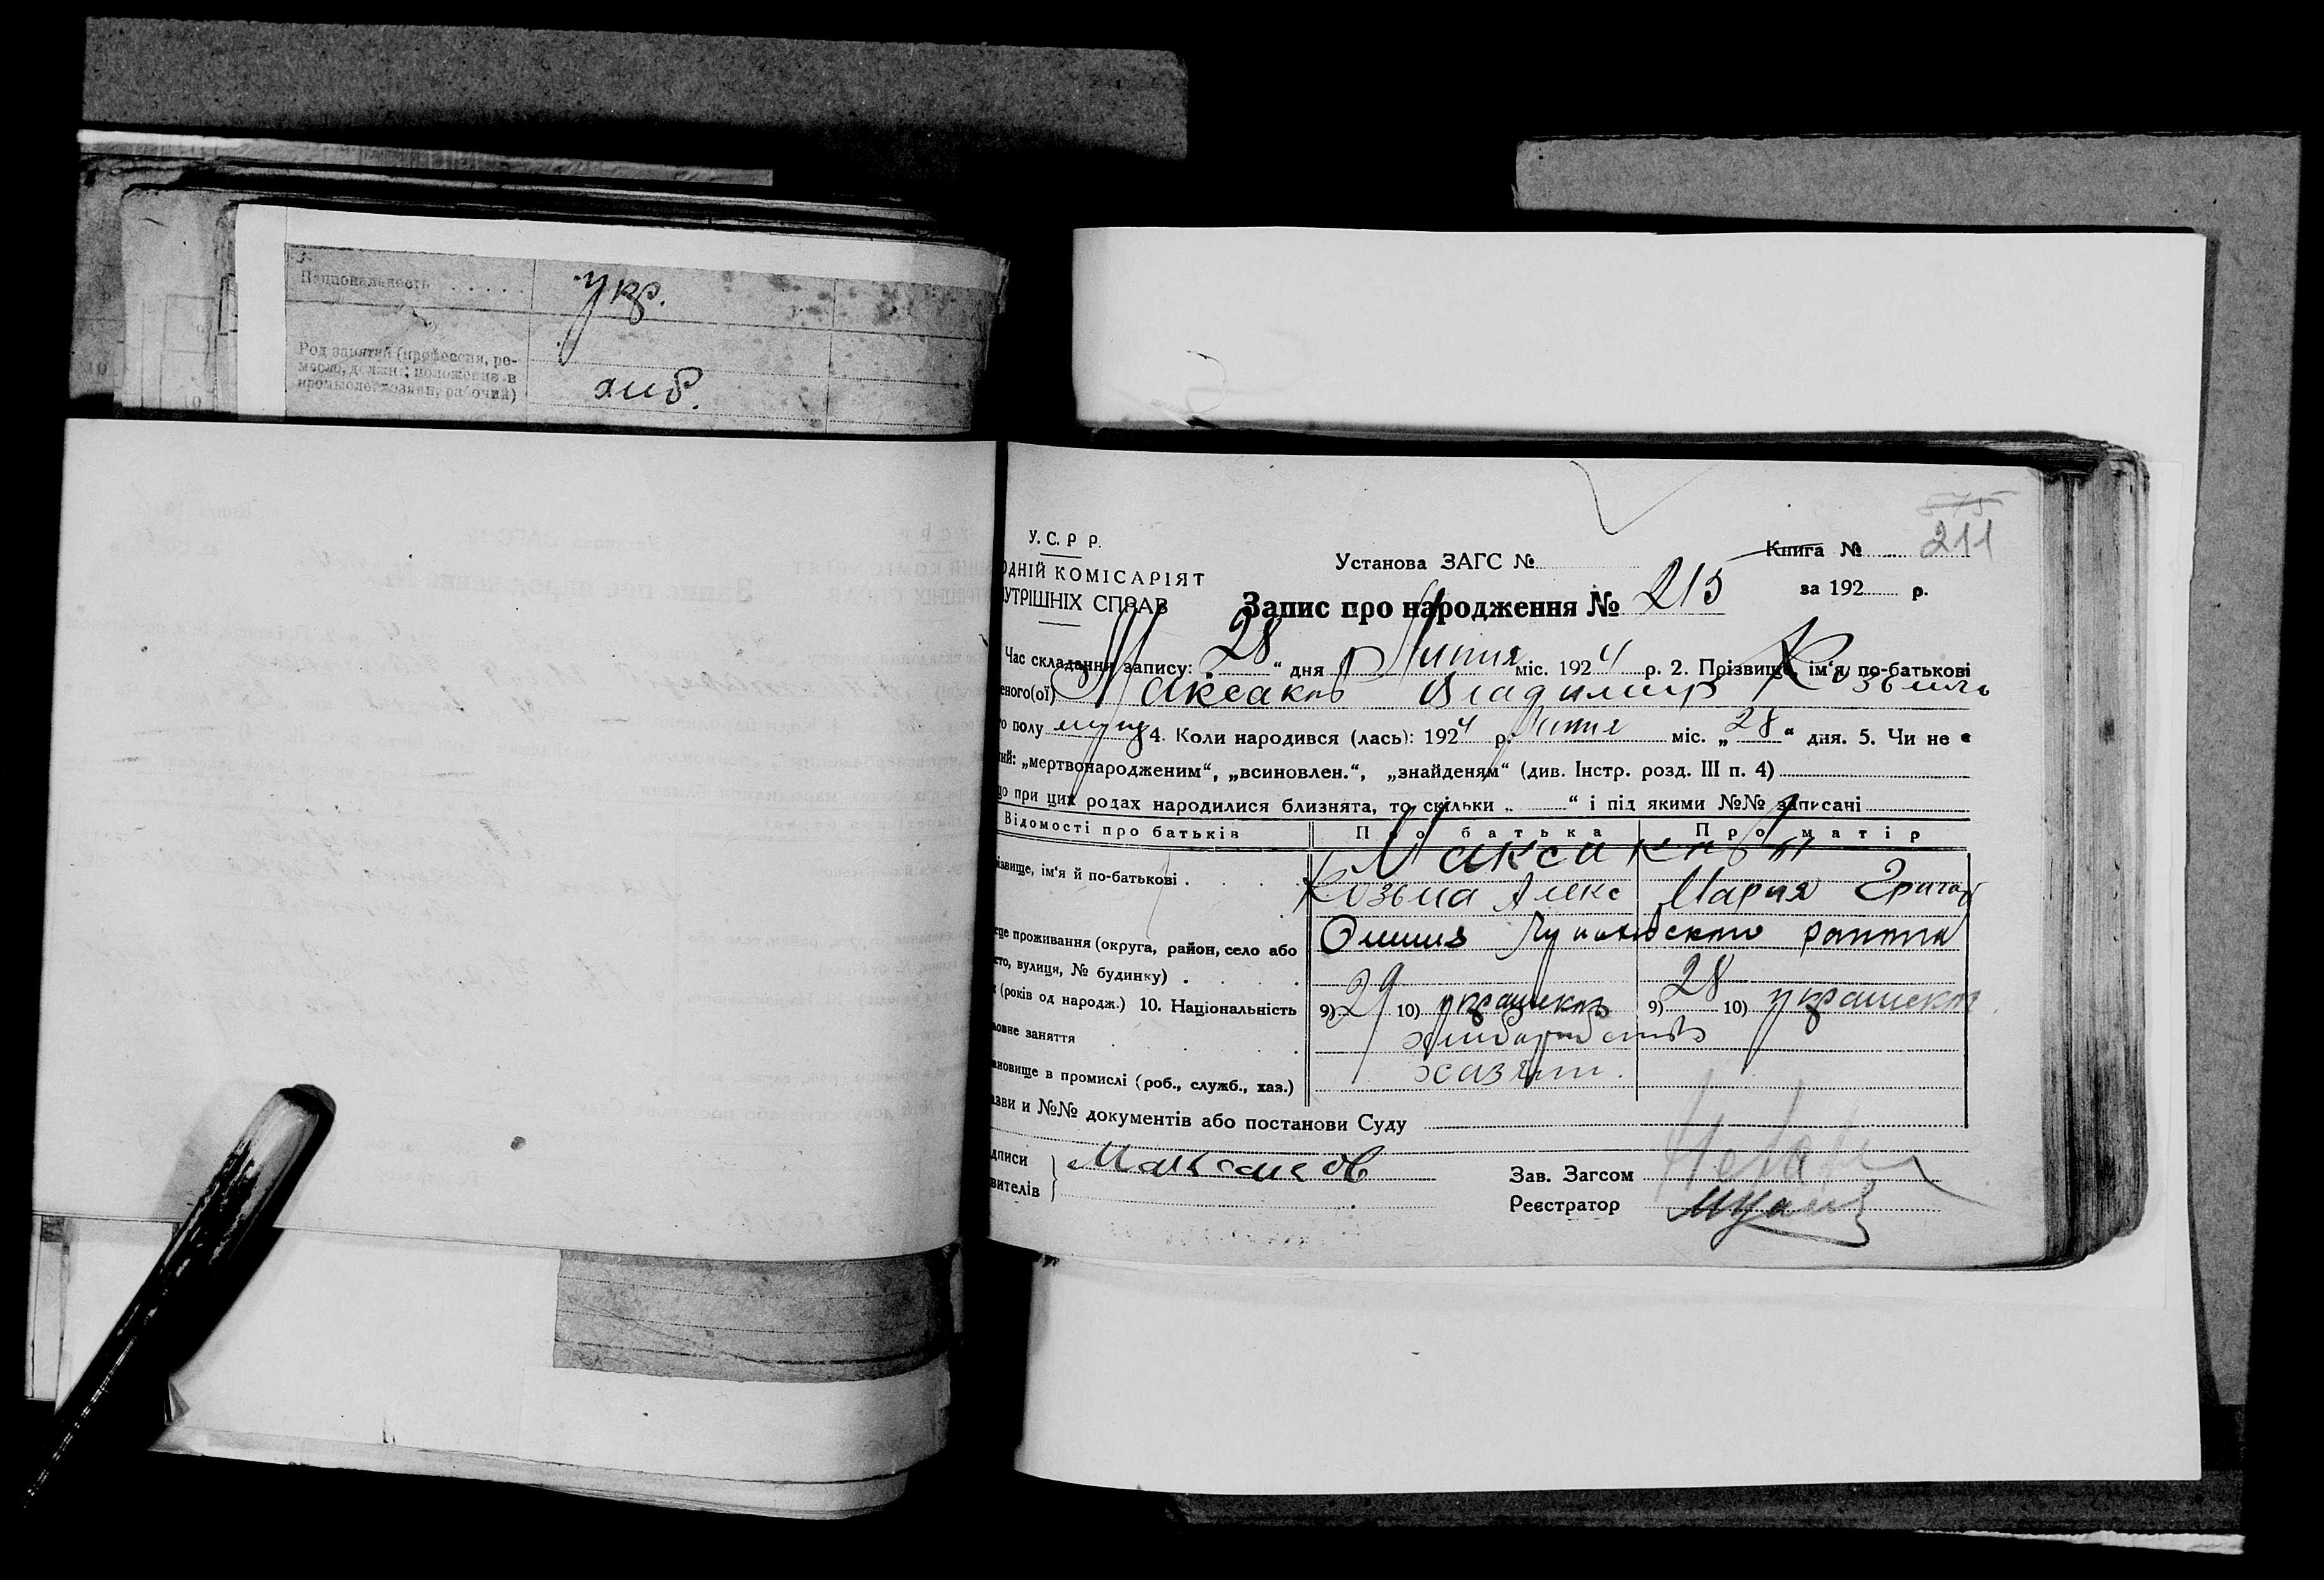 Национальность
укр.
Род занятий (профессия, ре-
месло, должн.; положение в
промысле: хозяин, рабочий)
хліб.
575
У. С. Р Р.
Книга № 211
Установа ЗАГС №
ОДНІЙ КОМІСАРІЯТ
УТРІШНІХ СПРАВ
за 192 р.
Запис про народження № 215
Час складання запису: „28“ дня Липня міс. 1924 р. 2. Прізвище, ім‘я, по-батькові
еного(ої) Максаков Владимир
о полу муж 4. Коли народився (лась): 1924 р. Липня міс. „28“ дня. 5. Чи не є
ий: „мертвонародженим“, „всиновлен.“, „знайденям“ (див. Інстр. розд. III п. 4)
що при цих родах народилися близнята, то скільки „ “ і під якими №№ записані
Відомості про батьків Про батька Про матір
Максаковы
ізвище, ім‘я й по-батькові . Козьма Алекс Мария Григор
сце проживання (округа, район, село або
сто, вулиця, № будинку) . района
(років од народж.) 10. Національність 9) 29 10) украинец 9) 28 10) украинец
овне заняття хлиборобство
ановище в промислі (роб., служб., хаз.) хазяин.
азви и №№ документів або постанови Суду
дписи Максаков
вителів
Зав. Загсом
Реєстратор